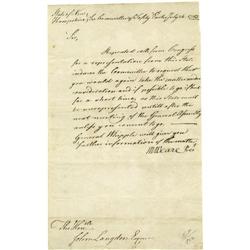 State of New
Hampshire, In Committee of Safety Exeter July
Sir,
Repeated calls from Congress
for a representation from this State
induces the Committee to request that
you would again take the matter into
consideration and if possible to go if but
for a short time, as this State must
be unrepresented untill after the
next meeting of the General Assembly
unless you consent to go.
General Whipple will give you
further information of the matter
M Weare Pres
The Honble
John Langdon Esquire